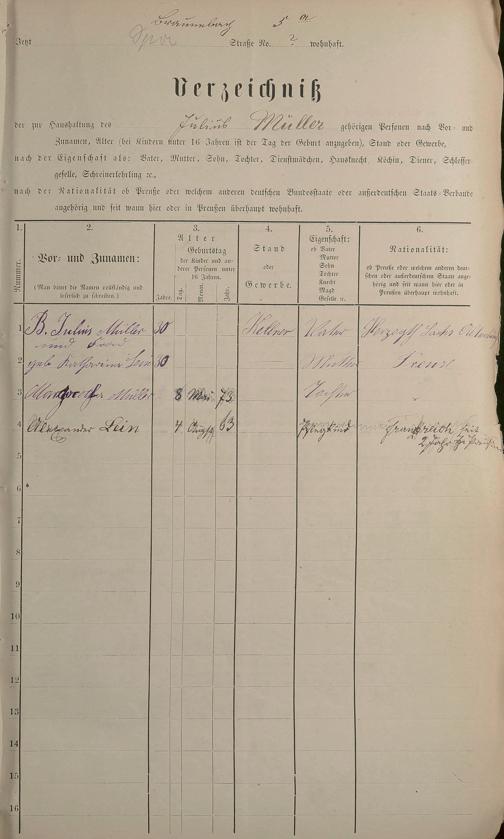 Braunebach 5 a
Jetzt Straße No. ? wohnhaft.
Verzeichniß
der zur Haushaltung des Julius Müller gehörigen Personen nach Vor- und
Zunamen, Alter (bei Kindern unter 16 Jahren ist der Tag der Geburt anzugeben), Stand oder Gewerbe,
nach der Eigenschaft als: Vater, Mutter, Sohn, Tochter, Dienstmädchen, Hausknecht, Köchin, Diener, Schlosser-
geselle, Schreinerlehrling ꝛc.,
nach der Nationalität ob Preuße oder welchem anderen deutschen Bundesstaate oder außerdeutschen Staats-Verbande
angehörig und seit wann hier oder in Preußen überhaupt wohnhaft.
1.
Nummer.
2.
Vor- und Zunamen:
(Man bittet die Namen vollständig und
leserlich zu schreiben.)
3.
Alter
Geburtstag
der Kinder und an-
derer Personen unter
16 Jahren.
Jahre.
Tag.
Monat.
Jahr.
4.
Stand
oder
Gewerbe.
5.
Eigenschaft:
ob Vater
Mutter
Sohn
Tochter
Knecht
Magd
Geselle ꝛc.
6.
Nationalität:
ob Preuße oder welchem anderen deut-
schen oder außerdeutschen Staate ange-
hörig und seit wann hier oder in
Preußen überhaupt wohnhaft.
1 B. Julius Müller 30 Kellner Vater Herzogth Sachs Altenburg
und Frau
2 geb. Katharina Lein 30 Mutter Preuße
3 Müller 8 Mai 73 Tochter "
4 Alexander Lein 4 Augst 63 Pflegkind Frankreich seit
2 Jahr in Preußen
5
6
7
8
9
10
11
12
13
14
15
16